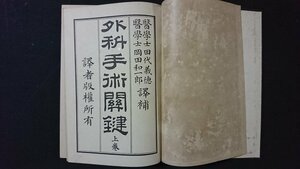 醫學士田代義德
醫學士岡田和一郎
譯補
外科手術關鍵
上卷
譯者版權所有